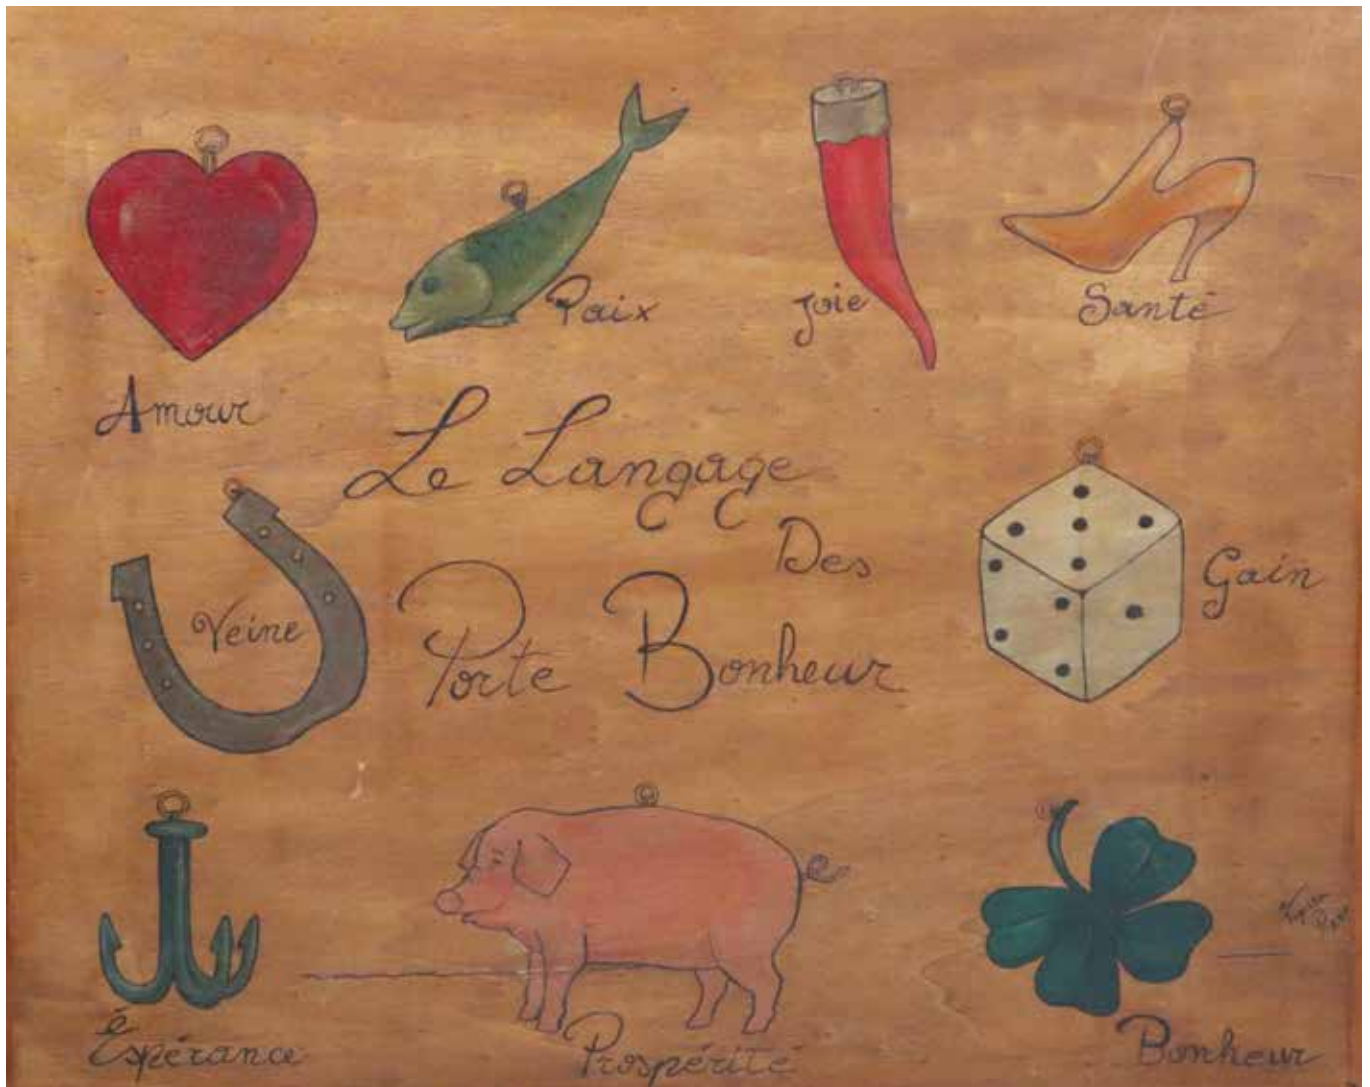 Paix
Joie
Santé
Amour
Le Langage
Des
Porte Bonheur
Veine
Gain
Éspérance
Prospérité
Bonheur